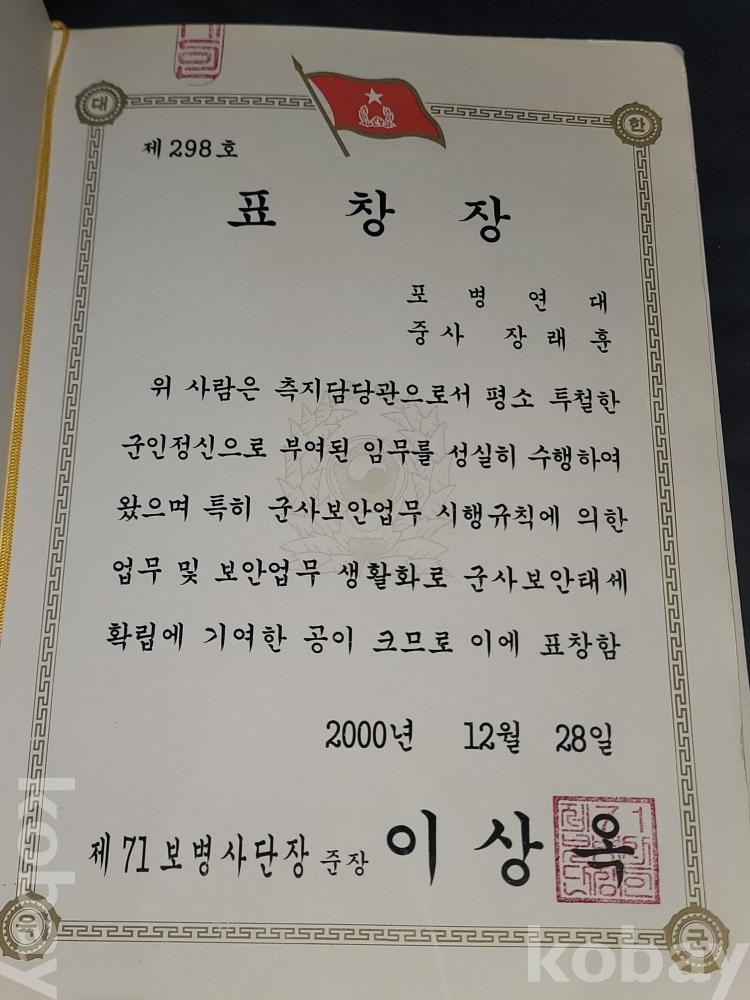 대 한
제 298 호
표 창 장
포 병 연 대
중 사 장 래 훈
위 사람은 측지담당관으로서 평소 투철한
군인정신으로 부여된 임무를 성실히 수행하여
왔으며 특히 군사보안업무 시행규칙에 의한
업무 및 보안업무 생활화로 군사보안태세
확립에 기여한 공이 크므로 이에 표창함
2000년 12월 28일
제 71 보병사단장 준장 이 상 옥
육 국
kobay
kobay